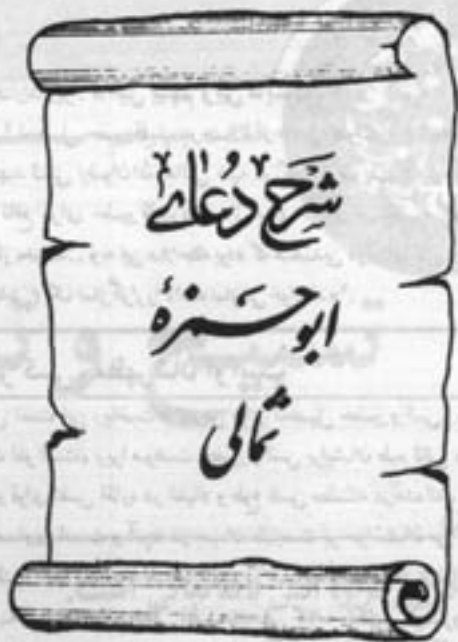 شرح دُعائے
ابو حمزۂ
ثمالی